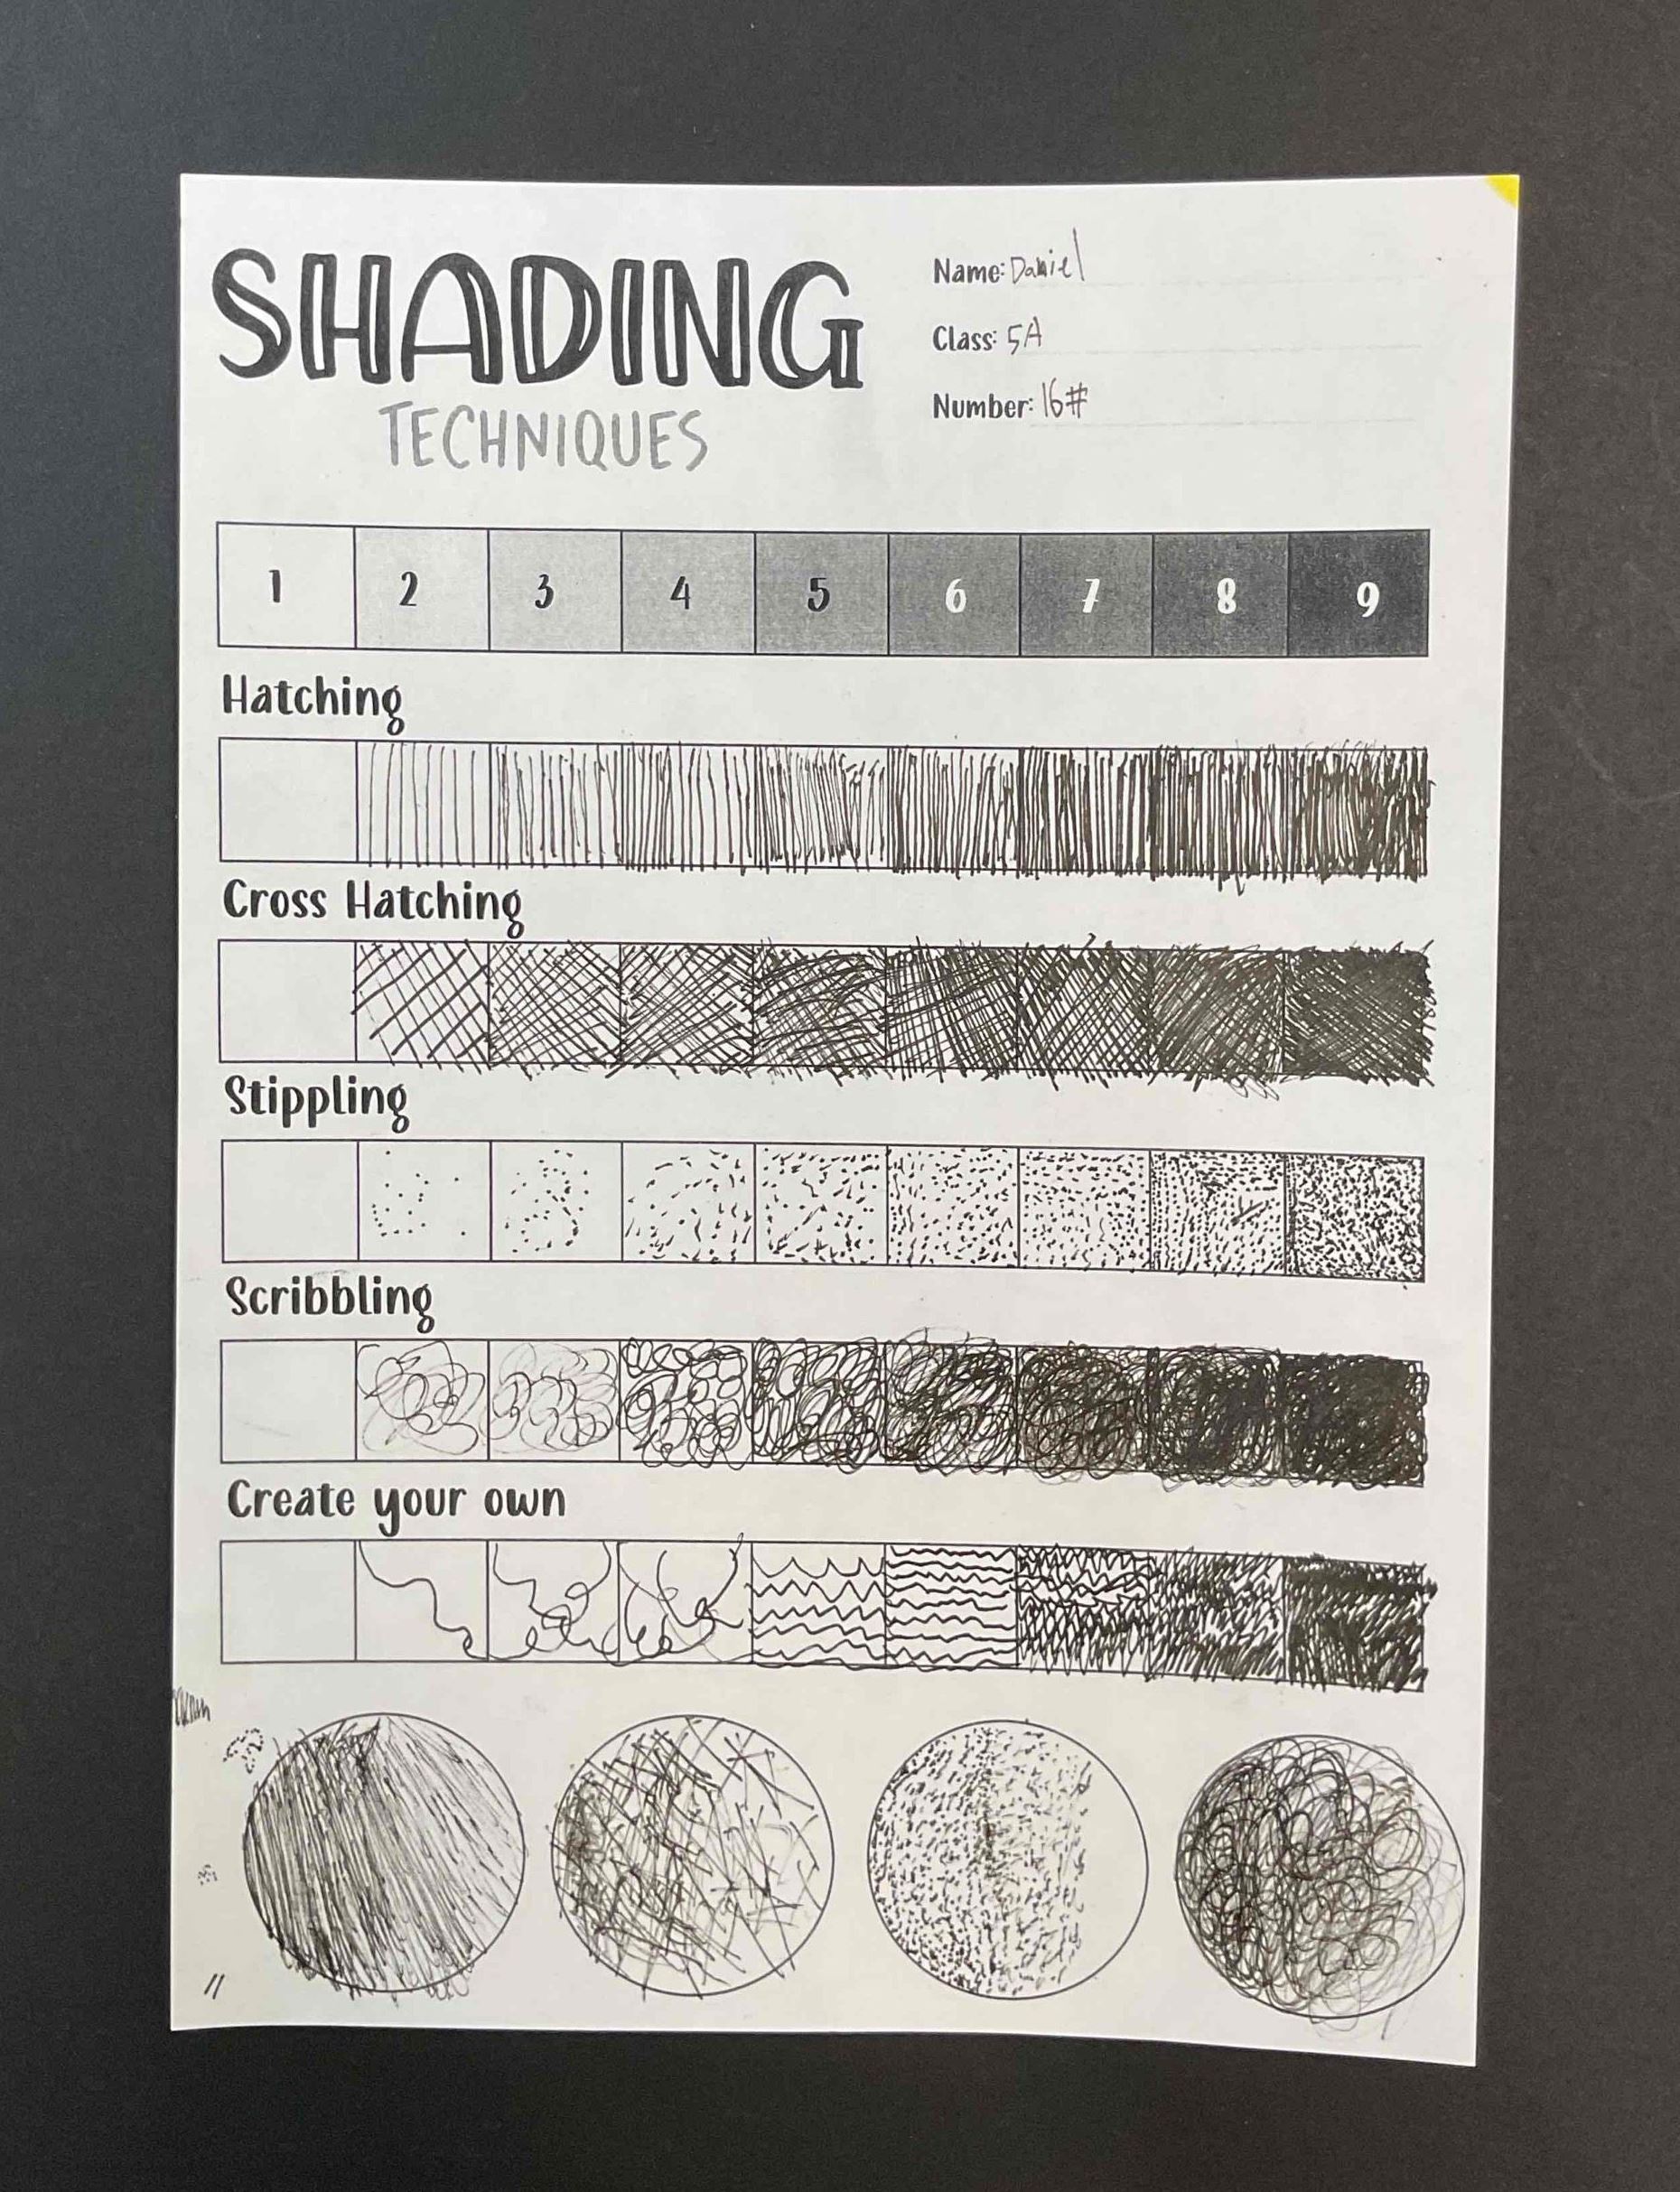 SHADING
TECHNIQUES
Name: Daniel
Class: 5A
Number: 16#
1 2 3 4 5 6 7 8 9
Hatching
Cross Hatching
Stippling
Scribbling
Create your own